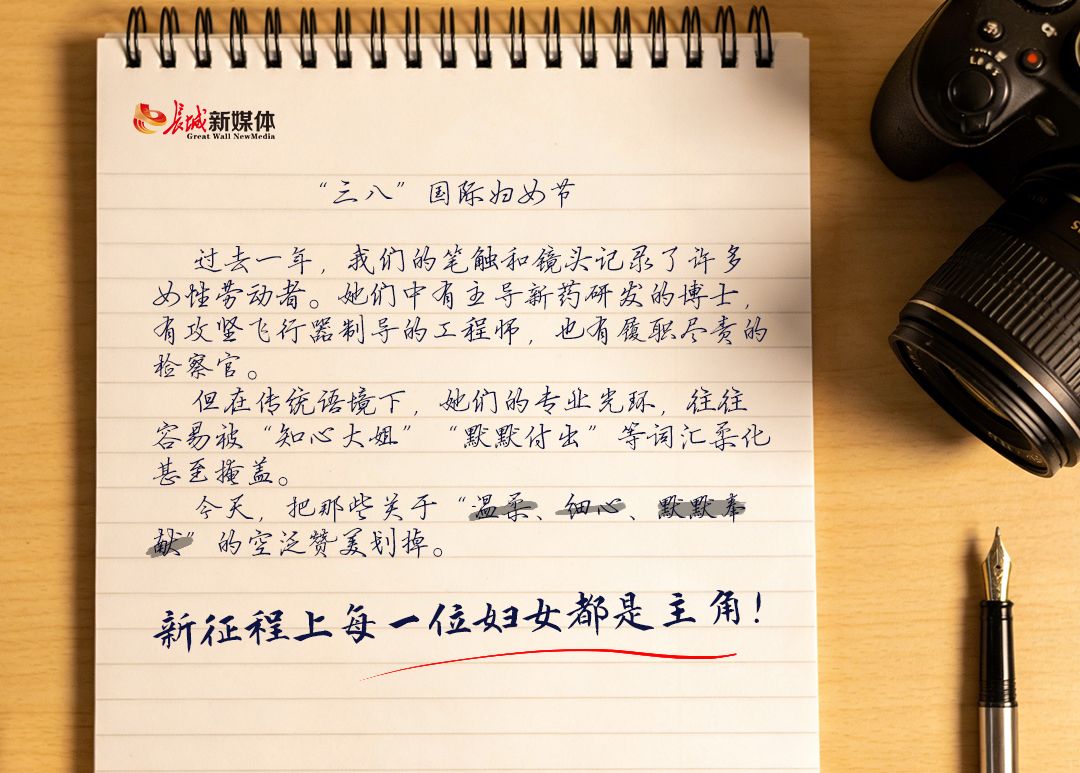 长城新媒体
Great Wall NewMedia
“三八”国际妇女节
过去一年，我们的笔触和镜头记录了许多
女性劳动者。她们中有主导新药研发的博士，
有攻坚飞行器制导的工程师，也有履职尽责的
检察官。
但在传统语境下，她们的专业光环，往往
容易被“知心大姐”“默默付出”等词汇柔化
甚至掩盖。
今天，把那些关于“温柔、细心、默默奉
献”的空泛赞美划掉。
新征程上每一位妇女都是主角！